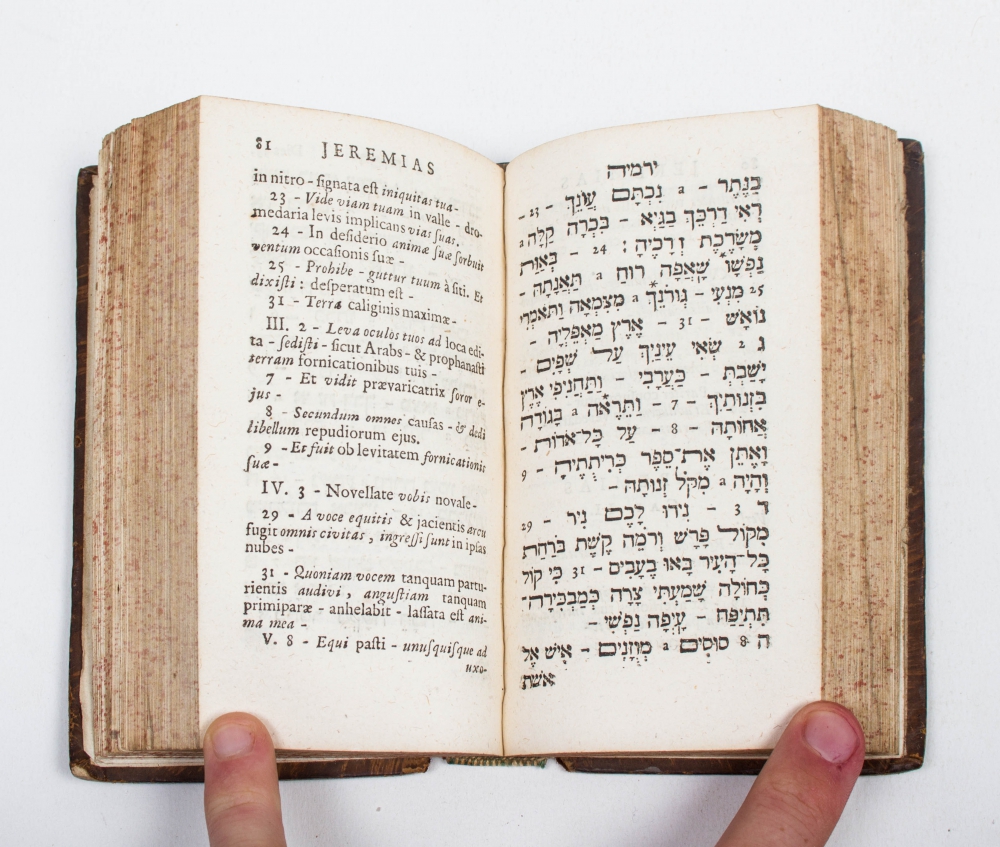 81 JEREMIAS
in nitro - ſignata eſt iniquitas tua-
23 - Vide viam tuam in valle - dro-
medaria levis implicans vias ſuas.
24 - In deſiderio animæ ſuæ ſorbuit
ventum occaſionis ſuæ -
25 - Prohibe - guttur tuum à ſiti. Et
dixiſti : deſperatum eſt -
31 - Terra caliginis maximæ-
III. 2 - Leva oculos tuos ad loca edi-
ta - ſediſti - ſicut Arabs - & prophanaſti
terram fornicationibus tuis -
7 - Et vidit prævaricatrix ſoror e-
jus -
8 - Secundum omnes cauſas - & dedi
libellum repudiorum ejus.
9 - Et fuit ob levitatem fornicationis
ſuæ -
IV. 3 - Novellate vobis novale-
29 - A voce equitis & jacientis arcu
fugit omnis civitas, ingreſſi ſunt in ipſas
nubes -
31 - Quoniam vocem tanquam partu-
rientis audivi, anguſtiam tanquam
primiparæ - anhelabit - laſſata eſt ani-
ma mea -
V. 8 - Equi paſti - unuſquiſque ad
uxo-
ירמיה
בַּנֶּתֶר - a נִכְתָּם עֲוֺנֵךְ - 23 -
רְאִי דַרְכֵּךְ בַּגַּיְא - בִּכְרָה קַלָּה a
מְשָׂרֶכֶת דְּרָכֶיהָ : 24 - בְּאַוַּת
נַפְשׁוֹ* שָׁאֲפָה רוּחַ a תַּאֲנָתָהּ -
25 מִנְעִי - גּוֹרְנֵךְ* a מִצִּמְאָה וַתֹּאמְרִי
נוֹאָשׁ - 31 - אֶרֶץ מַאְפֵּלְיָה -
ג 2 שְׂאִי עֵינַיִךְ עַל שְׁפָיִם -
יָשַׁבְתְּ - כַּעֲרָבִי - וַתַּחֲנִיפִי אֶרֶץ
בִּזְנוּתַיִךְ - 7 - וַתֵּרֶאה* a בָּגוֹדָה
אֲחוֹתָהּ - 8 - עַל כָּל־אֹדוֹת -
וָאֶתֵּן אֶת־סֵפֶר כְּרִיתֻתֶיהָ - 9
וְהָיָה a מִקֹּל זְנוּתָהּ -
ד 3 - נִירוּ לָכֶם נִיר - 29
מִקּוֹל פָּרָשׁ וְרֹמֵה קֶשֶׁת בֹּרַחַת
כָּל־הָעִיר בָּאוּ בֶּעָבִים - 31 כִּי קוֹל
כְּחוֹלָה שָׁמַעְתִּי צָרָה כְּמַבְכִּירָה -
תִּתְיַפֵּחַ - עָיְפָה נַפְשִׁי -
ה 8 סוּסִים a מְוּזָנִים - אִישׁ אֶל
אשת